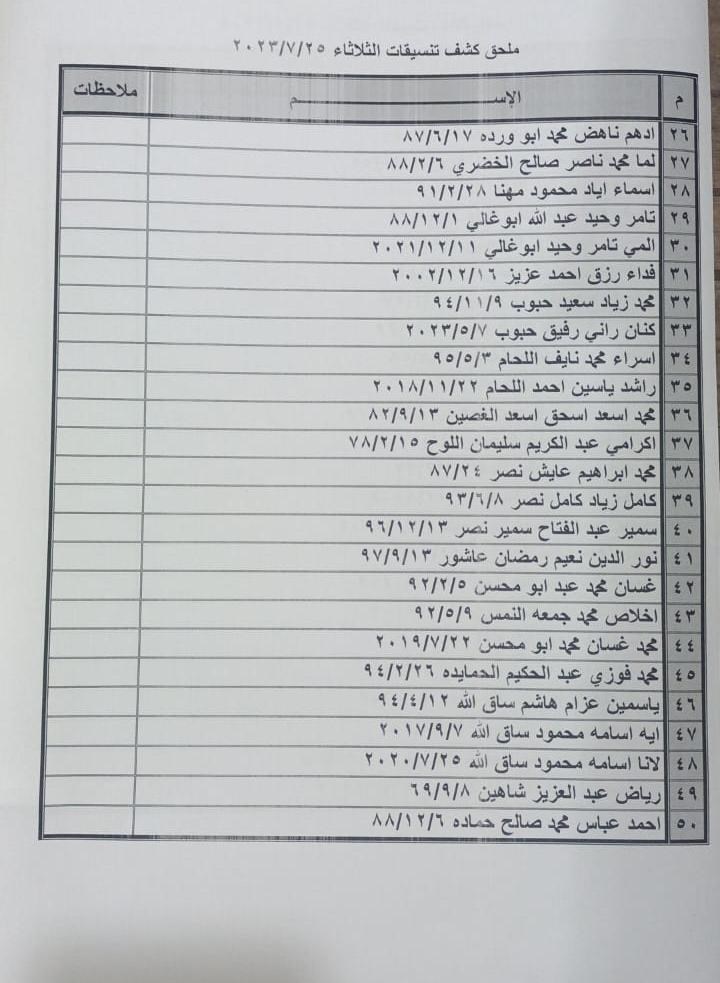 ملحق كشف تنسيقات الثلاثاء ٢٠٢٣/٧/٢٥
م الإســــم ملاحظات
٢٦ ادهم ناهض محمد ابو ورده ٨٧/٦/١٧
٢٧ لما محمد ناصر صالح الخضري ٨٨/٢/٦
٢٨ اسماء اياد محمود مهنا ٩١/٢/٢٨
٢٩ تامر وحيد عبد الله ابوغالي ٨٨/١٢/١
٣٠ المي تامر وحيد ابوغالي ٢٠٢١/١٢/١١
٣١ فداء رزق احمد عزيز ٢٠٠٢/١٢/١٦
٣٢ محمد زياد سعيد حبوب ٩٤/١١/٩
٣٣ كنان راني رفيق حبوب ٢٠٢٣/٥/٧
٣٤ اسراء محمد نايف اللحام ٩٥/٥/٣
٣٥ راشد ياسين احمد اللحام ٢٠١٨/١١/٢٢
٣٦ محمد اسعد اسحق اسعد الغصين ٨٢/٩/١٣
٣٧ اكرامي عبد الكريم سليمان اللوح ٧٨/٢/١٥
٣٨ محمد ابراهيم عايش نصر ٨٧/٢٤
٣٩ كامل زياد كامل نصر ٩٣/٦/٨
٤٠ سمير عبد الفتاح سمير نصر ٩٦/١٢/١٣
٤١ نور الدين نعيم رمضان عاشور ٩٧/٩/١٣
٤٢ غسان محمد عبد ابو محسن ٩٢/٢/٥
٤٣ اخلاص محمد جمعه النمس ٩٢/٥/٩
٤٤ محمد غسان محمد ابو محسن ٢٠١٩/٧/٢٢
٤٥ محمد فوزي عبد الحكيم الحمايده ٩٤/٢/٢٦
٤٦ ياسمين عزام هاشم ساق الله ٩٤/٤/١٢
٤٧ ايه اسامه محمود ساق الله ٢٠١٧/٩/٧
٤٨ لانا اسامه محمود ساق الله ٢٠٢٠/٧/٢٥
٤٩ رياض عبد العزيز شاهين ٦٩/٩/٨
٥٠ احمد عباس محمد صالح حماده ٨٨/١٢/٦